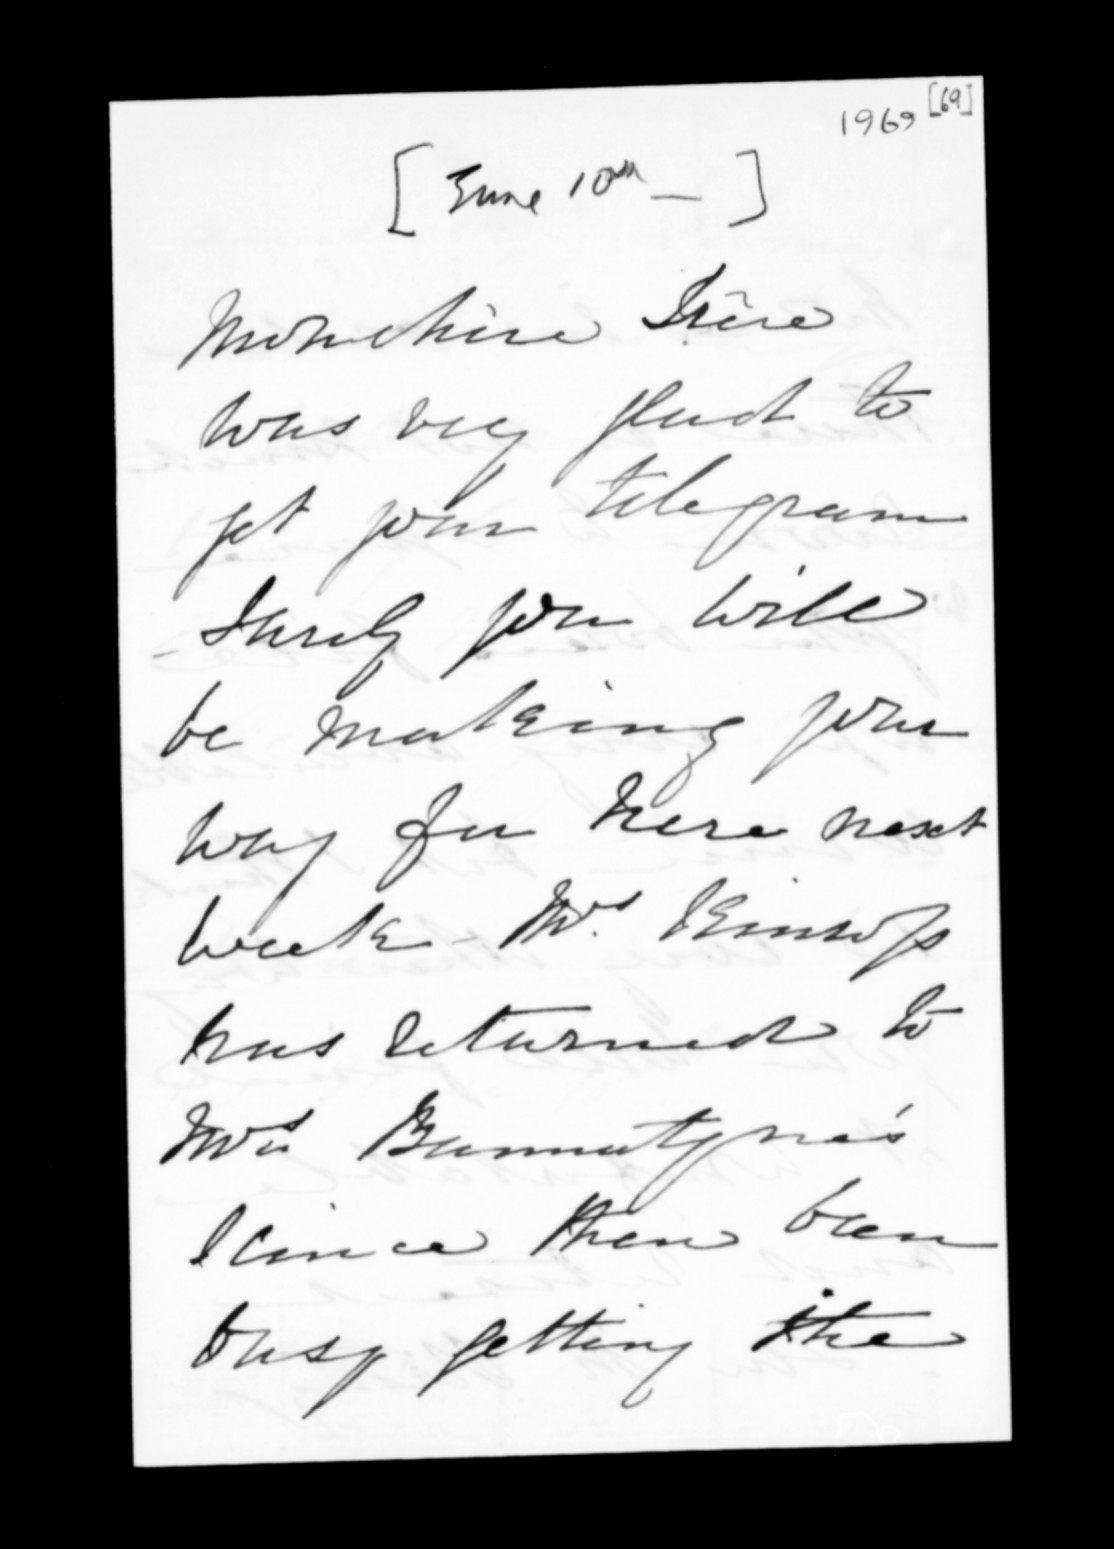 1969 [69]
[June 10th — ]
Mon chère Frère
Was very glad to
get your telegram
- Surely you will
be making your
way for here next
week - Mrs
has returned to
Mrs Bannatyne's
Since then been
busy getting the